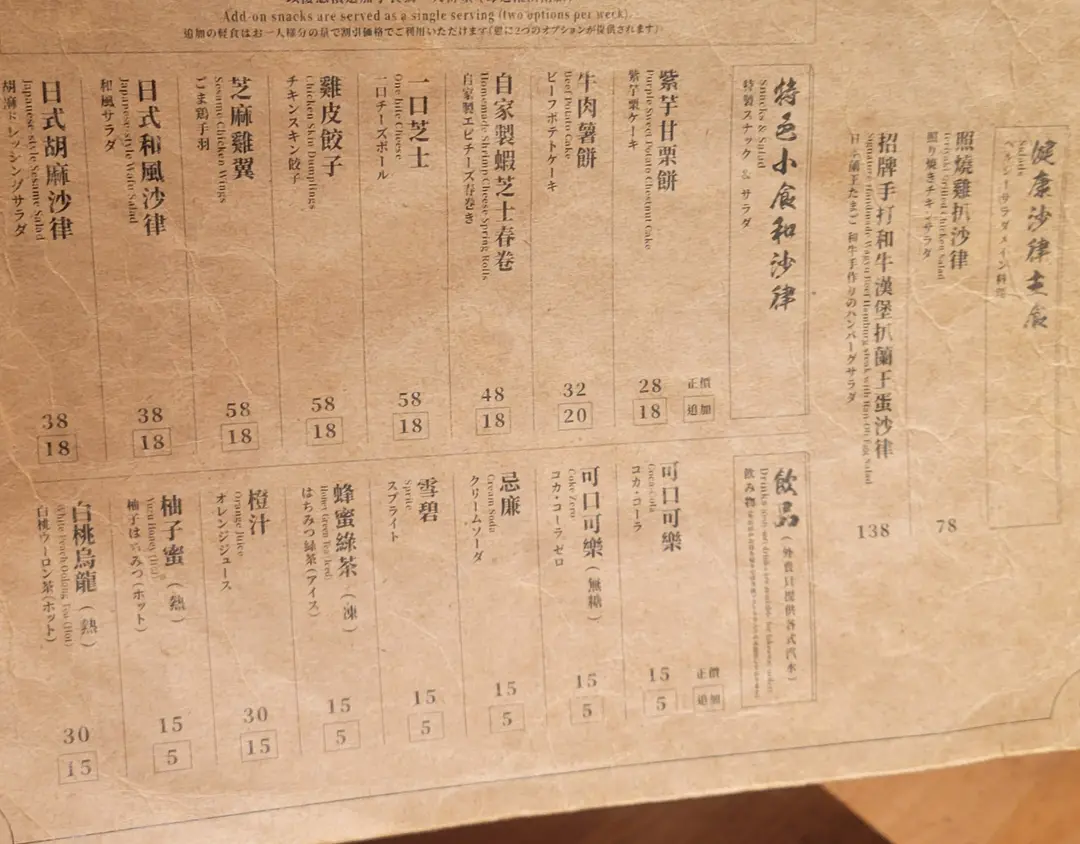 Add-on snacks are served as a single serving (two options per week).
追加の軽食はお一人様分の量で割引価格でご利用いただけます(週に2つのオプションが提供されます)
健康沙律主食
Salads
ヘルシーサラダメイン料理
照燒雞扒沙律
Grilled Chicken Salad
照り焼きチキンサラダ
78
招牌手打和牛漢堡扒蘭王蛋沙律
Signature Handmade Wagyu Beef Hamburg steak with Ran-Oh Egg Salad
和牛手作りのハンバーグサラダ
138
特色小食和沙律
Snacks & Salad
特製スナック & サラダ
正價
追加
紫芋甘栗餅
Purple Sweet Potato Chestnut Cake
紫芋栗ケーキ
28
18
牛肉薯餅
Beef Potato Cake
ビーフポテトケーキ
32
20
自家製蝦芝士春卷
Homemade Shrimp Cheese Spring Rolls
自家製エビチーズ春巻き
48
18
一口芝士
One bite Cheese
一口チーズボール
58
18
雞皮餃子
Chicken Skin Dumplings
チキンスキン餃子
58
18
芝麻雞翼
Sesame Chicken Wings
ごま鶏手羽
58
18
日式和風沙律
Japanese style Wafu Salad
和風サラダ
38
18
日式胡麻沙律
Japanese style Sesame Salad
胡麻ドレッシングサラダ
38
18
飲品(外賣只提供各式汽水)
飲み物
正價
追加
可口可樂
Coca-Cola
コカ・コーラ
15
5
可口可樂(無糖)
Coke Zero
コカ・コーラ ゼロ
15
5
忌廉
Cream Soda
クリームソーダ
15
5
雪碧
Sprite
スプライト
15
5
蜂蜜綠茶(凍)
Honey Green Tea (Iced)
はちみつ緑茶(アイス)
15
5
橙汁
Orange Juice
オレンジジュース
30
15
柚子蜜(熱)
Yuzu Honey (Hot)
柚子はちみつ(ホット)
15
5
白桃烏龍(熱)
White Peach Oolong Tea (Hot)
白桃ウーロン茶(ホット)
30
15